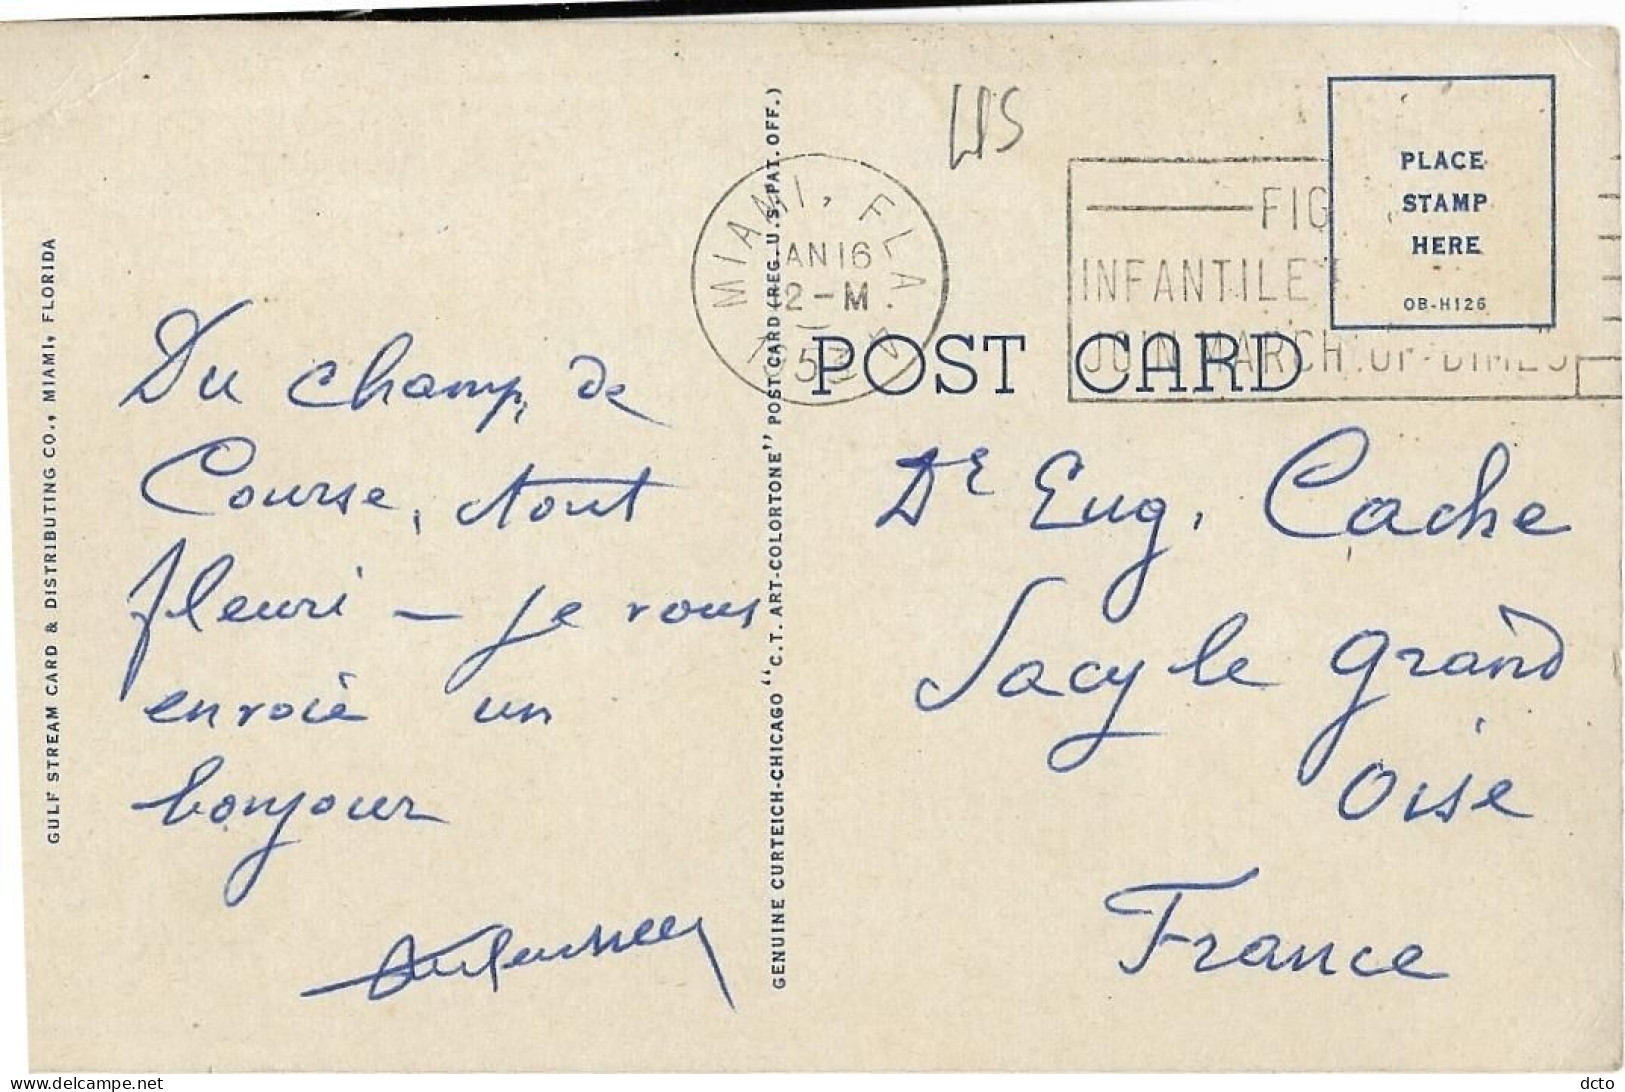 GULF STREAM CARD & DISTRIBUTING CO., MIAMI, FLORIDA
Du champ, de
Course, tout
fleuri — je vous
envoie un
bonjour
GENUINE CURTEICH-CHICAGO "C.T. ART-COLORTONE" POST CARD (REG. U.S. PAT. OFF.)
MIAMI, FLA.
JAN 16
2-M
1953
FIG
INFANTILE
JOIN MARCH OF DIMES
PLACE
STAMP
HERE
OB-H126
POST CARD
Dr Eug. Cache
Sacy le Grand
Oise
France
delcampe.net
dcto